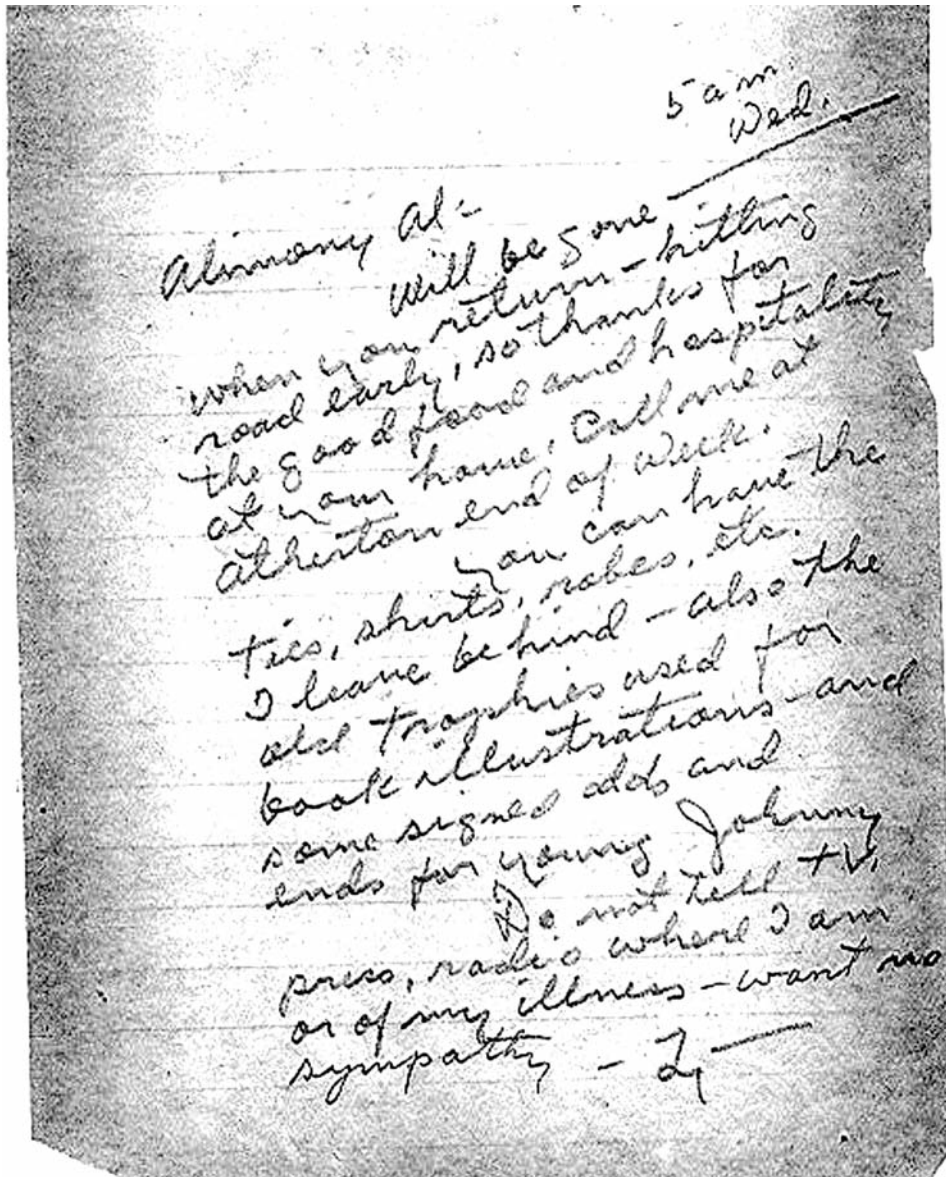 5 am.
Wed.
Alimony Al-
Will be gone
when you return - hitting
road early, so thanks for
the good food and hospitality
at your home. Call me at
Atherton end of week.
You can have the
ties, shirts, robes, etc.
I leave behind - also the
old trophies used for
book illustrations - and
some signed odds and
ends for young Johnny
Do not tell TV,
press, radio where I am
or of my illness - want no
sympathy -